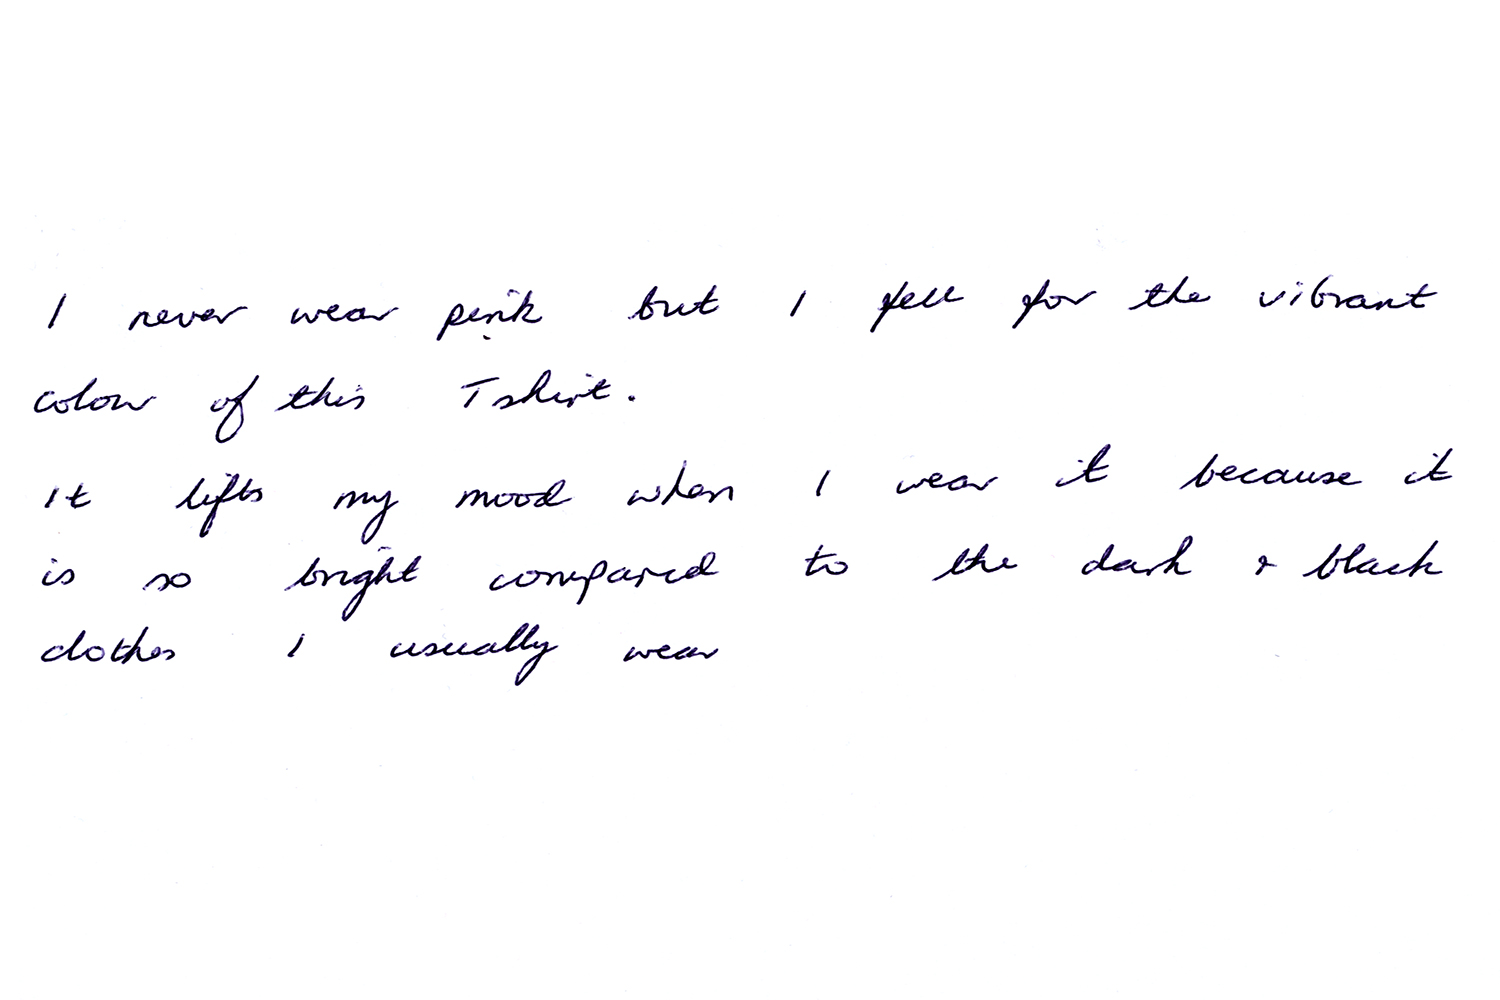 I never wear pink but I fell for the vibrant
colour of this Tshirt.
It lifts my mood when I wear it because it
is so bright compared to the dark & black
clothes I usually wear